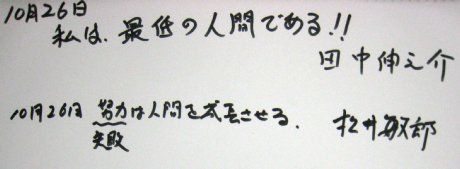 10月26日
私は、最低の人間である!!
田中伸之介
10月26日 努力は人間を成長させる。 松井敏郎
失敗